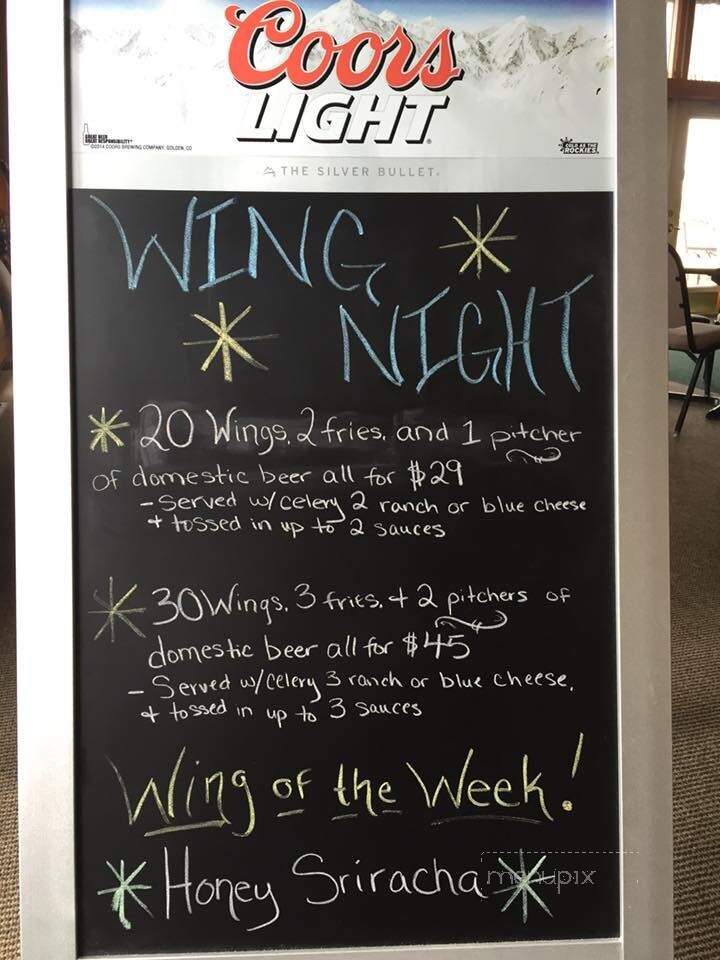 Coors
LIGHT
GREAT BEER
GREAT RESPONSIBILITY
©2014 COORS BREWING COMPANY, GOLDEN, CO
COLD AS THE
ROCKIES
THE SILVER BULLET.
WING
NIGHT
20 Wings, 2 fries, and 1 pitcher
of domestic beer all for $29
- Served w/celery 2 ranch or blue cheese
+ tossed in up to 2 sauces
30 Wings, 3 fries, + 2 pitchers of
domestic beer all for $45
- Served w/celery 3 ranch or blue cheese,
+ tossed in up to 3 sauces
Wing of the Week!
Honey Sriracha
menupix